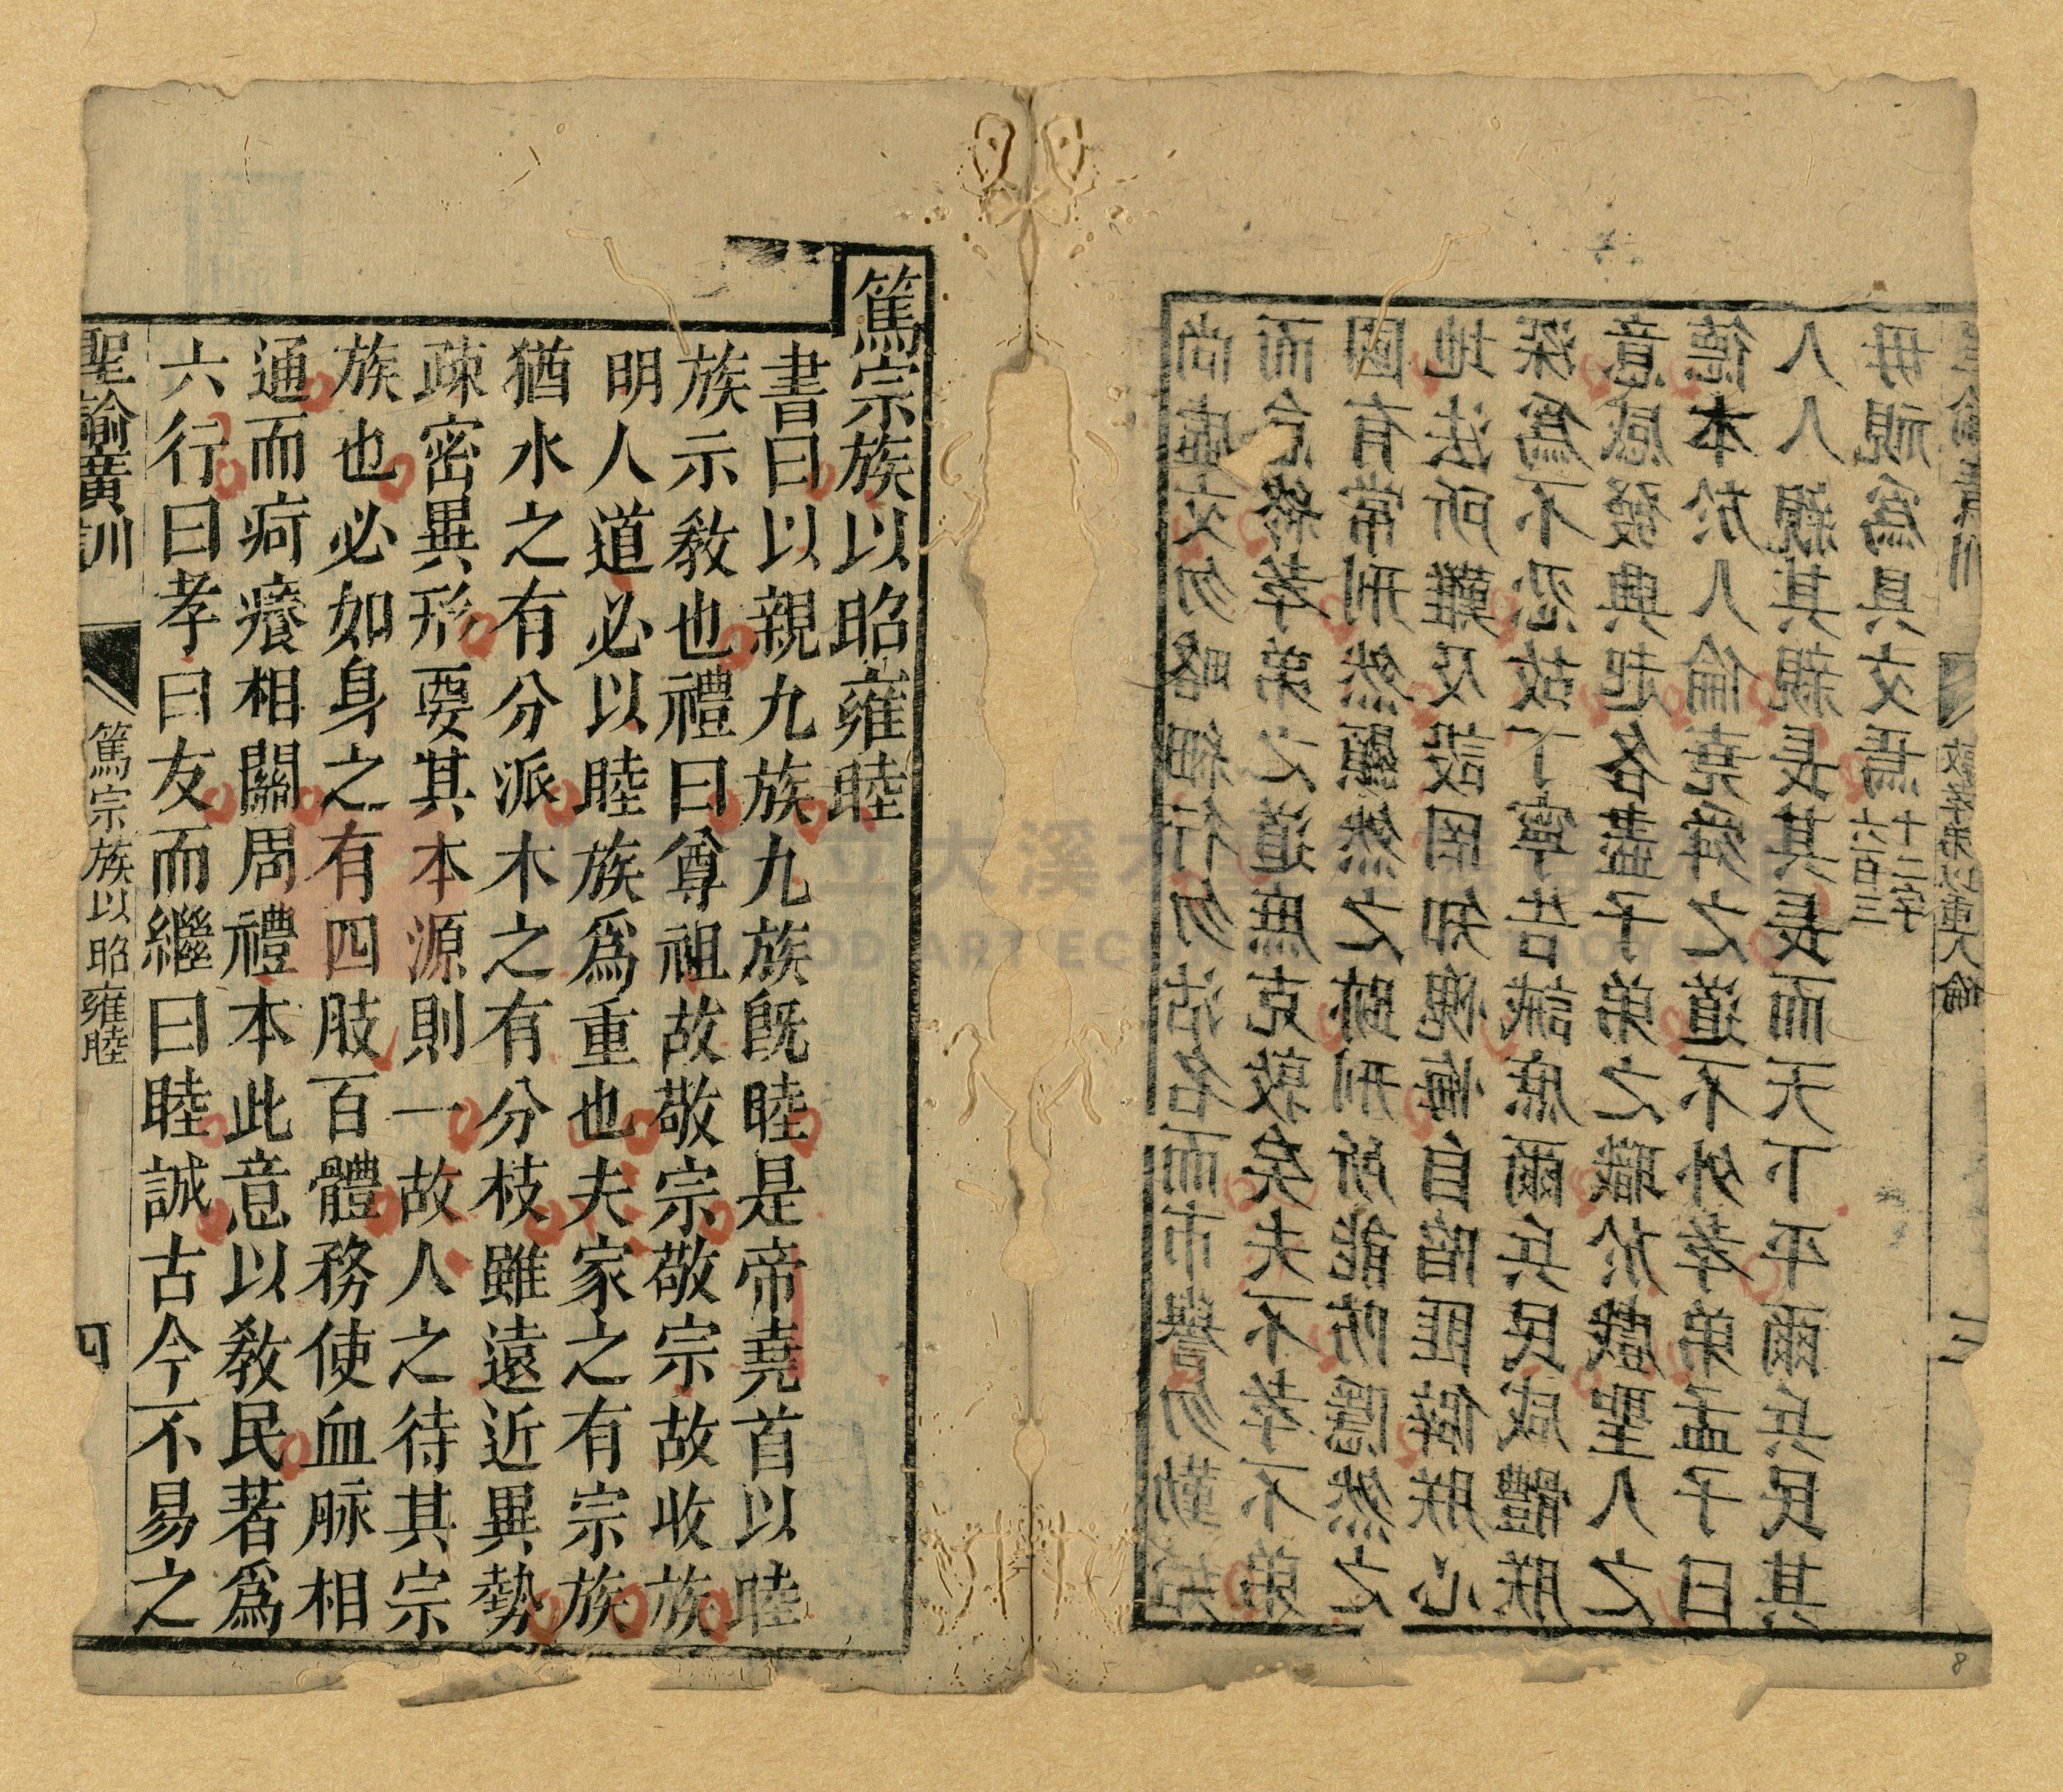 尚虛文勿略細行勿沽名而市譽勿勤始
而怠終孝弟之道庶克敦矣夫不孝不弟
國有常刑然顯然之跡刑所能防隱然之
地法所難及設罔知愧悔自陷匪僻朕心
深爲不忍故丁寧告誡庶爾兵民咸體朕
意感發興起各盡子弟之職於戲聖人之
德本於人倫堯舜之道不外孝弟孟子曰
人人親其親長其長而天下平爾兵民其
毋視爲具文焉六百三十二字
聖諭廣訓 敦孝弟以重人倫 三
篤宗族以昭雍睦
書曰以親九族九族旣睦是帝堯首以睦
族示敎也禮曰尊祖故敬宗敬宗故收族
明人道必以睦族爲重也夫家之有宗族
猶水之有分派木之有分枝雖遠近異勢
疎密異形要其本源則一故人之待其宗
族也必如身之有四肢百體務使血脈相
通而疴癢相關周禮本此意以敎民著爲
六行曰孝曰友而繼曰睦誠古今不易之
聖諭廣訓 篤宗族以昭雍睦 四
大溪
ART EC
8